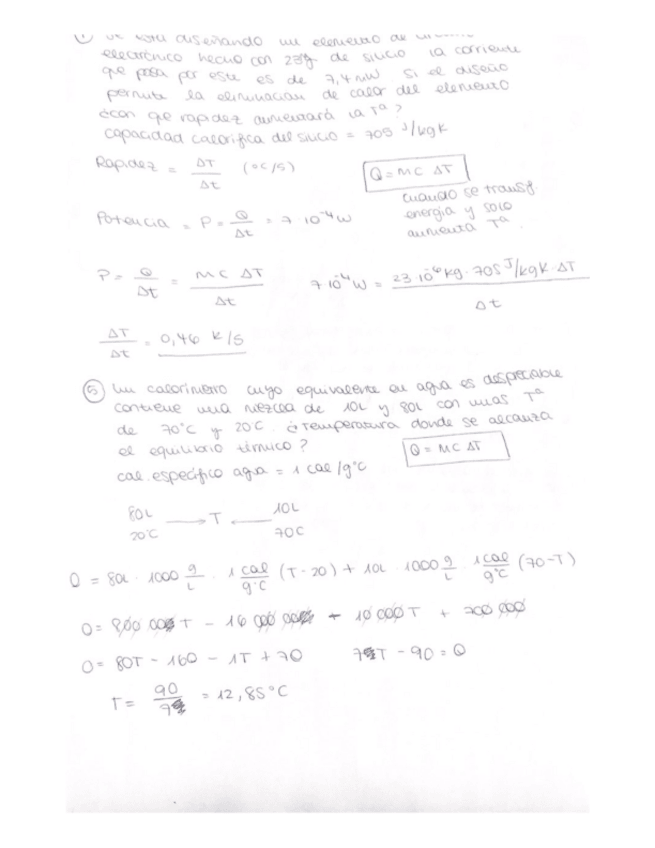 diseñando un elemento de
electrónico hecho con 23g de silicio la corriente
que pasa por este es de 7,4 mW si el diseño
permite la eliminacion de calor del elemento
¿con que rapidez aumentará la Tª?
capacidad calorifica del silicio = 705 J/kgK
Rapidez = ΔT/Δt (ºC/s)
Q = MC ΔT
cuando se transf.
energia y solo
aumenta Tª
Potencia = P = Q/Δt = 7·10⁻⁴W
P = Q/Δt = MC ΔT/Δt 7·10⁻⁴W = 23·10⁻⁶kg·705 J/kgK·ΔT/Δt
ΔT/Δt = 0,46 K/s
⑤ Un calorimetro cuyo equivalente en agua es despreciable
contiene una mezcla de 10L y 80L con unas Tª
de 70ºC y 20ºC. ¿Temperatura donde se alcanza
el equilibrio térmico?
Q = MC ΔT
cal. especifico agua = 1 cal/gºC
80L → T ← 10L
20ºC 70C
0 = 80L·1000 g/L · 1 cal/g·C (T-20) + 10L·1000 g/L · 1 cal/gºC (70-T)
0 = 80T - 160 - 1T + 70
T = = 12,85ºC